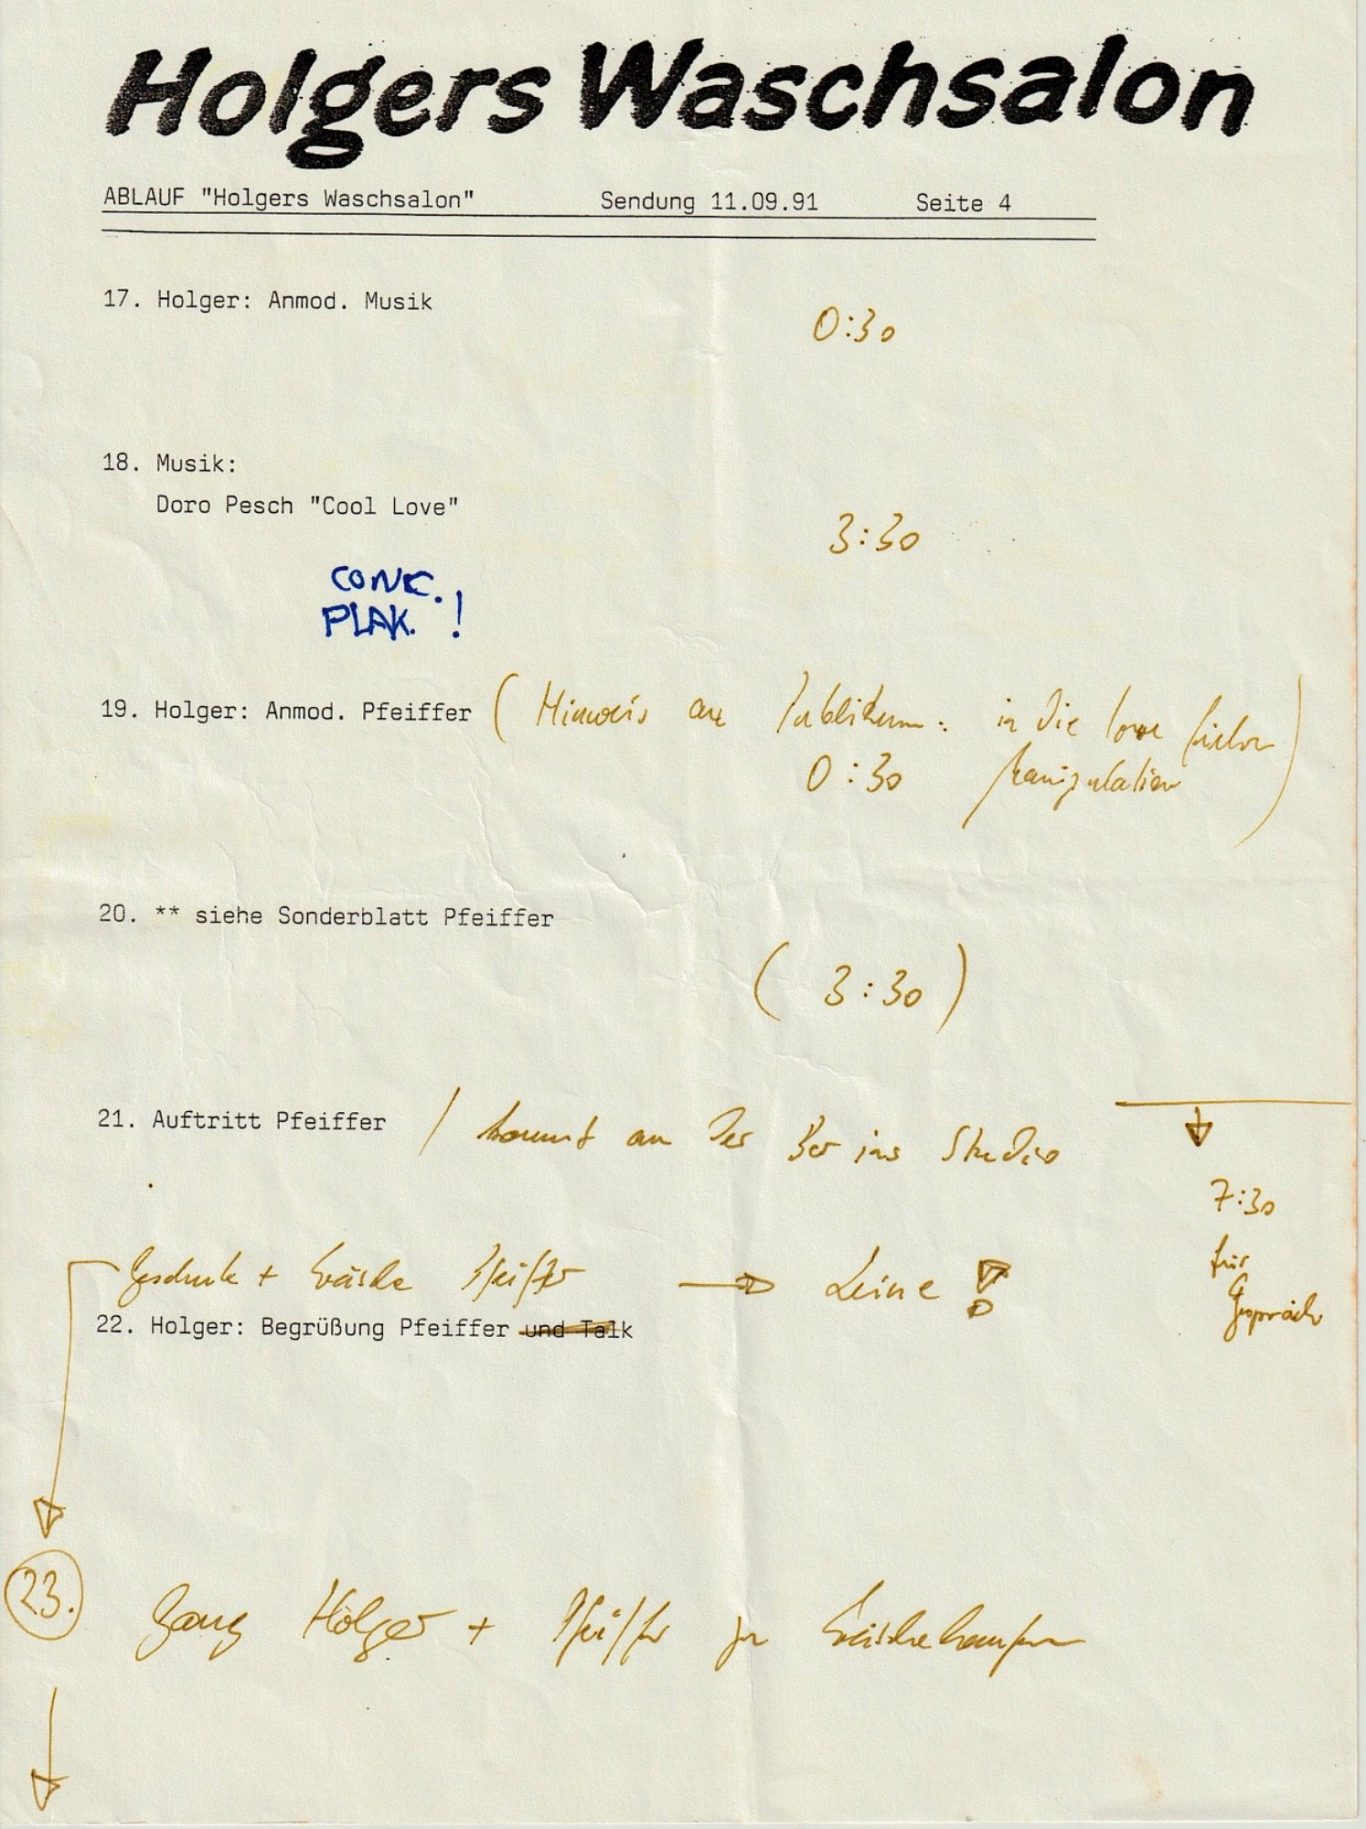 Holgers Waschsalon
ABLAUF "Holgers Waschsalon" Sendung 11.09.91 Seite 4
17. Holger: Anmod. Musik
0:30
18. Musik:
Doro Pesch "Cool Love"
3:30
CONC.
PLAK. !
19. Holger: Anmod. Pfeiffer ( Hinweis an Publikum: in die
0:30 Manipulation )
20. ** siehe Sonderblatt Pfeiffer
( 3:30 )
21. Auftritt Pfeiffer / kommt an der Bar ins Studio
7:30
für
Gespräch
Geschenk + Wäsche Pfeiffer → Leine !
22. Holger: Begrüßung Pfeiffer und Talk
23. Gang Holger + Pfeiffer zu